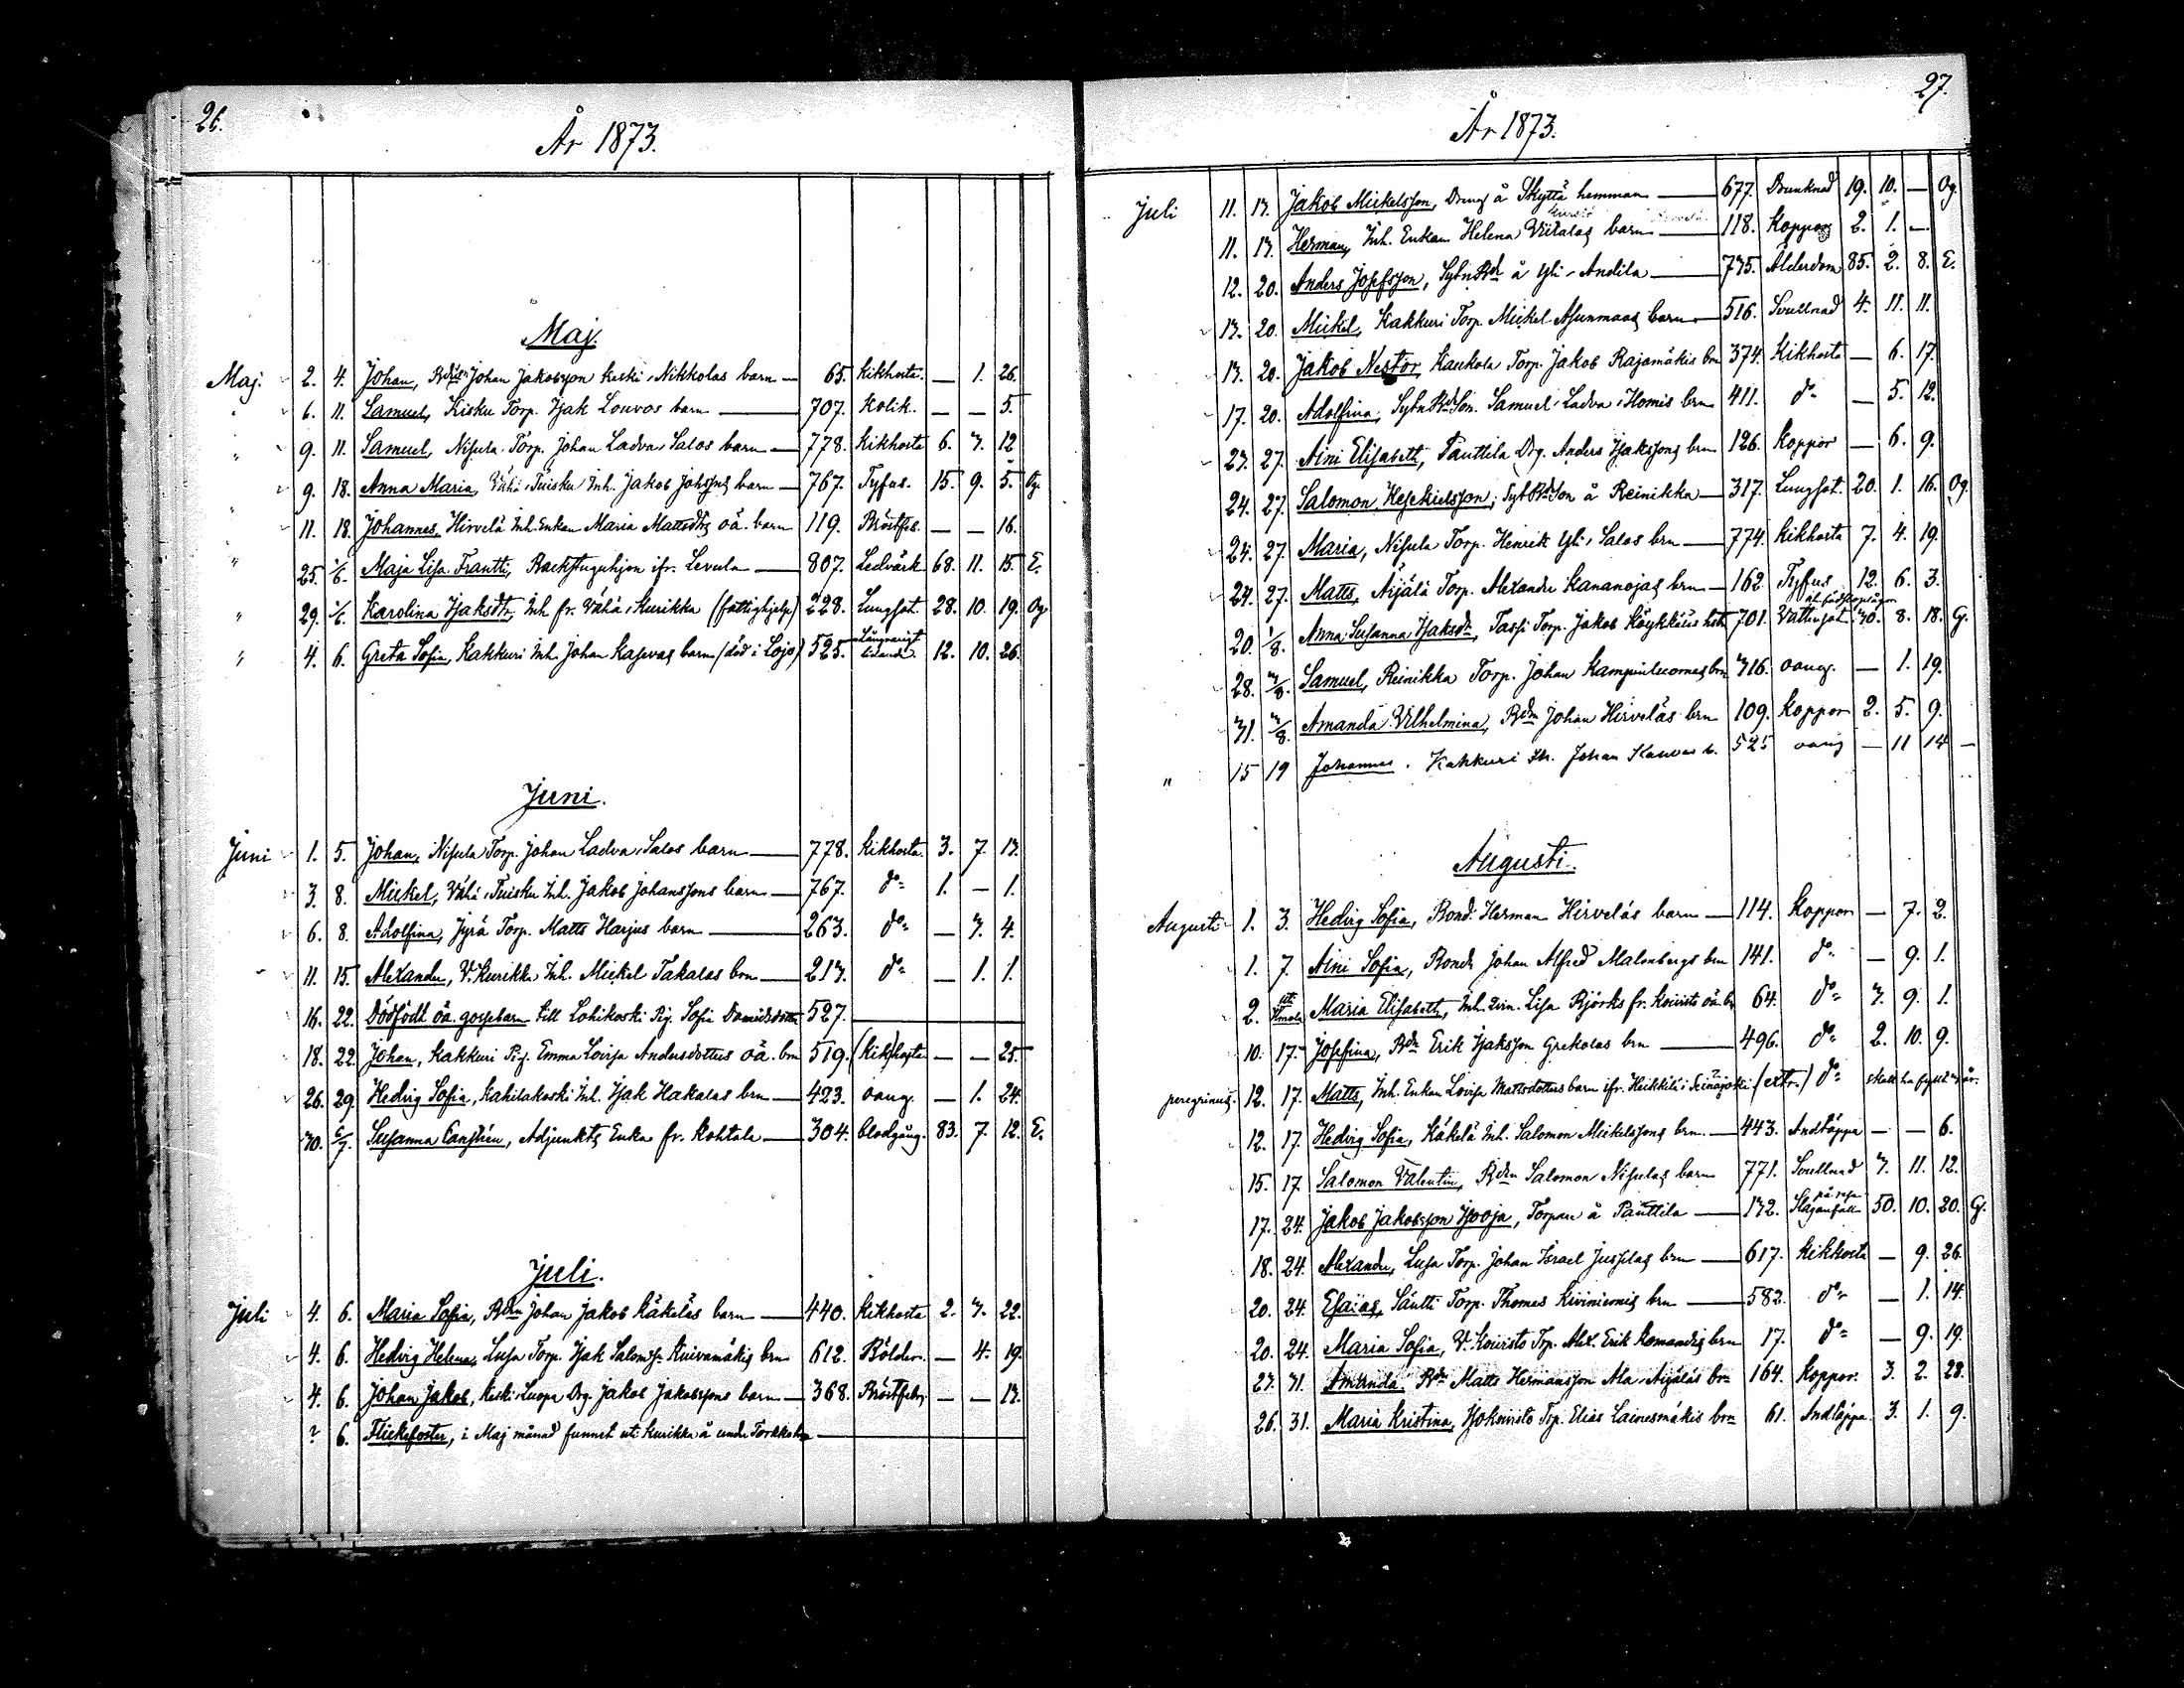 26.
År 1873.
Maj.
Maj. 2. 4. Johan, Bdes Johan Jakobsson Keski-Nikkolas barn — 65. Kikhosta. — 1. 26.
" 6. 11. Samuel, Kisku Torp. Isak Louvos barn — 707. Kolik. — — 5.
" 9. 11. Samuel, Nisula Torp. Johan Ladva-Salos barn — 778. Kikhosta 6. 3. 12
9. 18. Anna Maria, Vähä-Tuisku Inh. Jakob Johssons barn — 767. Tyfus. 15. 9. 5. Og.
" 11. 18. Johannes, Hirvelä Inh. Enkan Maria Mattsdtrs oä. barn 119. Bröstfeb. — — 16.
" 25. 1/6. Maja Lisa Frantti, Backstuguhjon ifr. Levula — 807. Ledvärk 68. 11. 15. E.
" 29. 1/6. Karolina Isaksdtr, Inh. fr. Vähä-Kurikka (fattighjelp) 228. Lungsot. 28. 10. 19. Og
" 4. 6. Greta Sofia, Kakkuri Inh. Johan Kasvas barn (död i Lojo) 525. Långvarigt lidande. 12. 10. 26.
Juni.
Juni 1. 5. Johan, Nisula Torp. Johan Ladva-Salos barn — 778. Kikhosta. 3. 7. 13.
3. 8. Mickel, Vähä-Tuisku Inh. Jakob Johanssons barn — 767. do 1. — 1.
6. 8. Adolfina, Jyrä Torp. Matts Harjus barn — 263. do — 3. 4.
11. 15. Alexander, V. Kurikka Inh. Mickel Takalas brn — 213. do — 1. 1.
16. 22. Dödfödt oä. gossebarn till Lohikoski Pig. Sofia Davidsdotter 527. —
18. 22. Johan, Kakkuri Pig. Emma Lovisa Andersdotters oä. brn 519. (Kikhosta — — 25.
26. 29. Hedvig Sofia, Kahilakoski Inh. Isak Hakalas brn — 423. oang. — 1. 24.
30. 6/7. Susanna Canstrén, Adjunkts Enka fr. Kohtala — 304. blodgång. 83. 7. 12. E.
Juli.
Juli 4. 6. Maria Sofia, Bdn Johan Jakob Käkeläs barn — 440. Kikhosta 2. 3. 22.
4. 6. Hedvig Helena, Lusa Torp. Isak Salomss. Kuivamäkis brn 612. Bölder. — 4. 19.
4. 6. Johan Jakob, Keski-Luopa Drg. Jakob Jakobssons barn — 368. Bröstfeber — — 13.
? 6. Flickefoster, i Maj månad funnet uti Kurikka å under —
27.
År 1873.
Juli 11. 13. Jakob Mickelsson, Dreng å Skyttä hemman — 677. Drunknad 19. 10. — Og.
11. 13. Herman, Inh. Enkan Helena Viitalas barn — 118. Koppor 2. 1. —
12. 20. Anders Josefsson, SytnBdr å Yli-Andila — 735. Ålderdom 85. 2. 8. E.
13. 20. Mickel, Kakkuri Torp. Mickel Asunmaas barn — 516. Svullnad 4. 11. 11.
13. 20. Jakob Nestor, Kaukola Torp. Jakob Rajamäkis brn 374. Kikhosta — 6. 17.
17. 20. Adolfina, SytnBdeSon. Samuel Ladva-Homis brn 411. do — 5. 12.
23. 27. Aini Elisabeth, Panttila Drg. Anders Isakssons brn 126. Koppor — 6. 9.
24. 27. Salomon Hesekielsson, SytBdeSon å Reinikka — 317. Lungsot. 20. 1. 16. Og.
24. 27. Maria, Nisula Torp. Henrik Yli-Salos brn — 774. Kikhosta 7. 4. 19.
24. 27. Matts, Äijälä Torp. Alexander Kananojas brn — 162 Tyfus 12. 6. 3.
20. 1/8. Anna Susanna Isaksdr, Tassi Torp. Jakob Köykkäs hst 701. Vattusot. 30. 8. 18. G.
28. 3/8. Samuel, Reinikka Torp. Johan Kampinluomas brn 316. oang. — 1. 19.
31. 3/8. Amanda Vilhelmina, Bdn Johan Hirveläs brn 109. Koppor 2. 5. 9.
" 15 19 Johannes. Kakkuri In. Johan Kasvas b. 525 oang — 11 14 —
Augusti.
Augusti 1. 3. Hedvig Sofia, Bond. Herman Hirveläs barn — 114. Koppor — 7. 2.
1. 7. Aini Sofia, Bond. Johan Alfred Malmbergs brn 141. do — 9. 1.
2. uti Ilmola Maria Elisabeth, Inh. Qvin. Lisa Björks fr. Koivisto oä. b. 64. do 3. 9. 1.
10. 17. Josefina, Bdn Erik Isaksson Grekolas brn — 496. do 2. 10. 9.
peregrinus. 12. 17. Matts, Inh. Enkan Lovisa Mattsdotters barn ifr. Heikkilä i Seinäjoki (extr.) do skall ha fyllt 3 år.
12. 17. Hedvig Sofia, Käkelä Inh. Salomon Mickelssons brn. — 443. Andtäppa — — 6.
15. 17. Salomon Valentin, Bdn Salomon Nisulas barn 771. Svullnad 3. 11. 12.
17. 24. Jakob Jakobsson Isooja, Torpare å Panttila — 132. Slaganfall på resa 50. 10. 20. G.
18. 24. Alexander, Lusa Torp. Johan Israel Jussilas brn — 617. Kikhosta — 9. 26.
20. 24. Esaias, Säntti Torp. Thomas Kiviniemis brn — 582. do — 1. 14.
20. 24. Maria Sofia, V. Koivisto Trp. Alex. Erik Komandis brn 17. do — 9. 19.
23. 31. Amanda Bdn Matts Hermansson Ala-Äijäläs brn 164. Koppor. 3. 2. 28.
26. 31. Maria Kristina, Isokoivisto Trp. Elias Lainesmäkis brn 61. Andtäppa 3. 1. 9.